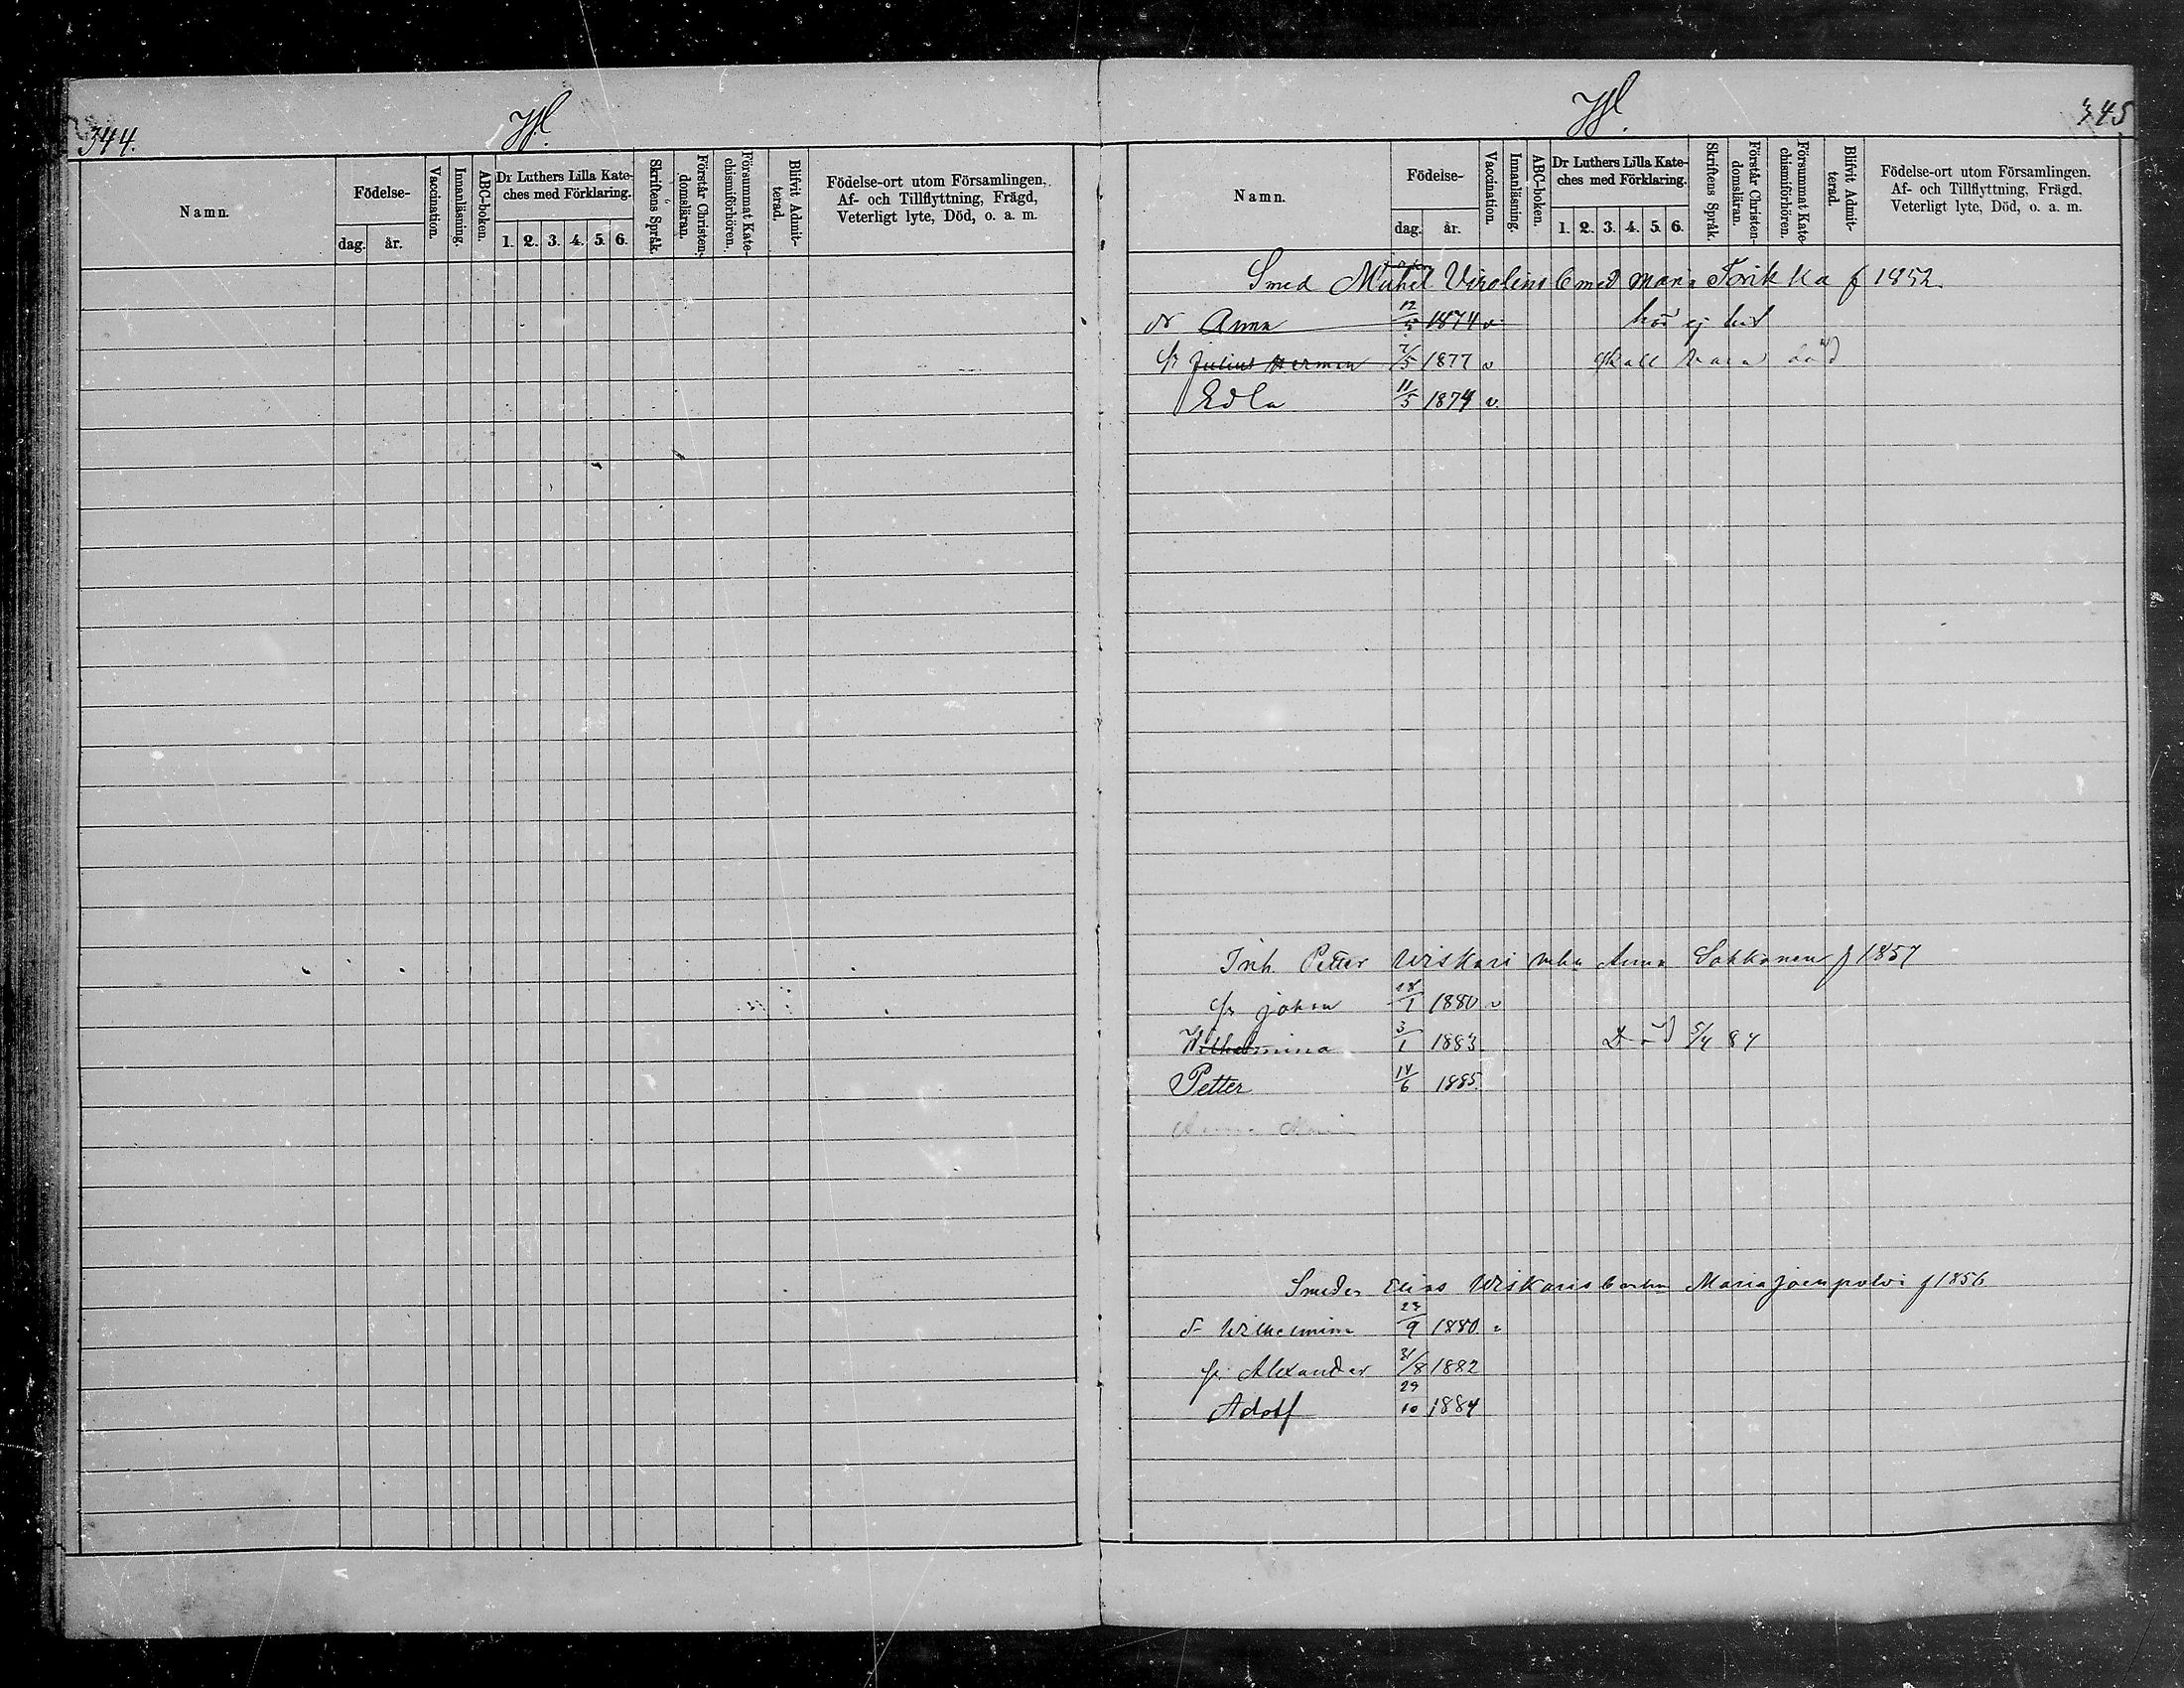 344.
Namn.
Födelse-
dag.
år.
Vaccination.
Innanläsning.
ABC-boken.
Dr Luthers Lilla Kate-
ches med Förklaring.
1. 2. 3. 4. 5. 6.
Skriftens Språk.
Förstår Christen-
domsläran.
Försummat Kate-
chismiförhören.
Blifvit Admit-
terad.
Födelse-ort utom Församlingen,
Af- och Tillflyttning, Frägd,
Veterligt lyte, Död, o. a. m.
345
Namn.
Födelse-
dag.
år.
Vaccination.
Innanläsning.
ABC-boken.
Dr Luthers Lilla Kate-
ches med Förklaring.
1. 2. 3. 4. 5. 6.
Skriftens Språk.
Förstår Christen-
domsläran.
Försummat Kate-
chismiförhören.
Blifvit Admit-
terad.
Födelse-ort utom Församlingen.
Af- och Tillflyttning, Frägd,
Veterligt lyte, Död, o. a. m.
Smed Mickel Virolins b med Maria Torikka f 1852.
Anna 12/5 1874 v hör ej hit
Julius Herman 7/5 1877 v skall vara död
Edla 11/5 1874 v.
Inh. Petter Wiskari Anna Sokkanen f 1857
johan 28/1 1880 v
Wilhelmina 3/1 1883 Död 5/4 84
Petter 14/6 1885.
Anna Maria
Smeden Elias Wiskaris barn Maria joenpolvi f 1856
Wilhelmina 9 1880
Alexander 31/8 1882
Adolf 29/10 1884